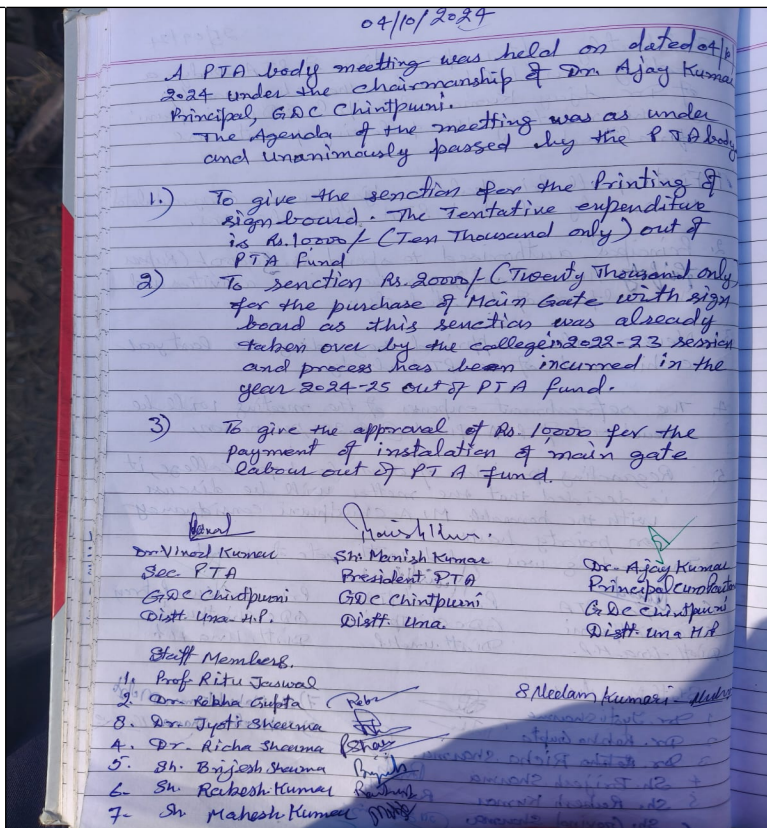 04/10/2024
A PTA body meetting was held on dated 04/10
2024 under the chairmanship of Dr. Ajay Kumar
Principal, GDC Chintpurni.
The Agenda of the meetting was as under
and unanimously passed by the PTA body
1.) To give the senction for the Printing of
sign-board. The Tentative expenditure
is Rs.10000/- (Ten Thousand only) out of
PTA Fund
2) To senction Rs. 20000/- (Twenty Thousand only)
for the purchase of Main Gate with sign
board as this senction was already
taken over by the college in 2022-23 session
and process has been incurred in the
year 2024-25 out of PTA fund.
3) To give the approval of Rs. 10000 for the
payment of instalation of main gate
labour out of PTA fund.
Dr. Vinod Kumar
Sec PTA
GDC Chintpurni
Distt. Una. H.P.
Sh. Manish Kumar
President PTA
GDC Chintpurni
Distt. Una.
Dr. Ajay Kumar
Principal cum Patron
GDC Chintpurni
Distt. Una H.P
Staff Members.
1. Prof Ritu Jaswal
2. Dr. Rebha Gupta
3. Dr. Jyoti Sharma
4. Dr. Richa Sharma
5. Sh. Brijesh Sharma
6- Sh. Rakesh Kumar
7- Sh. Mahesh Kumar
8 Neelam Kumari